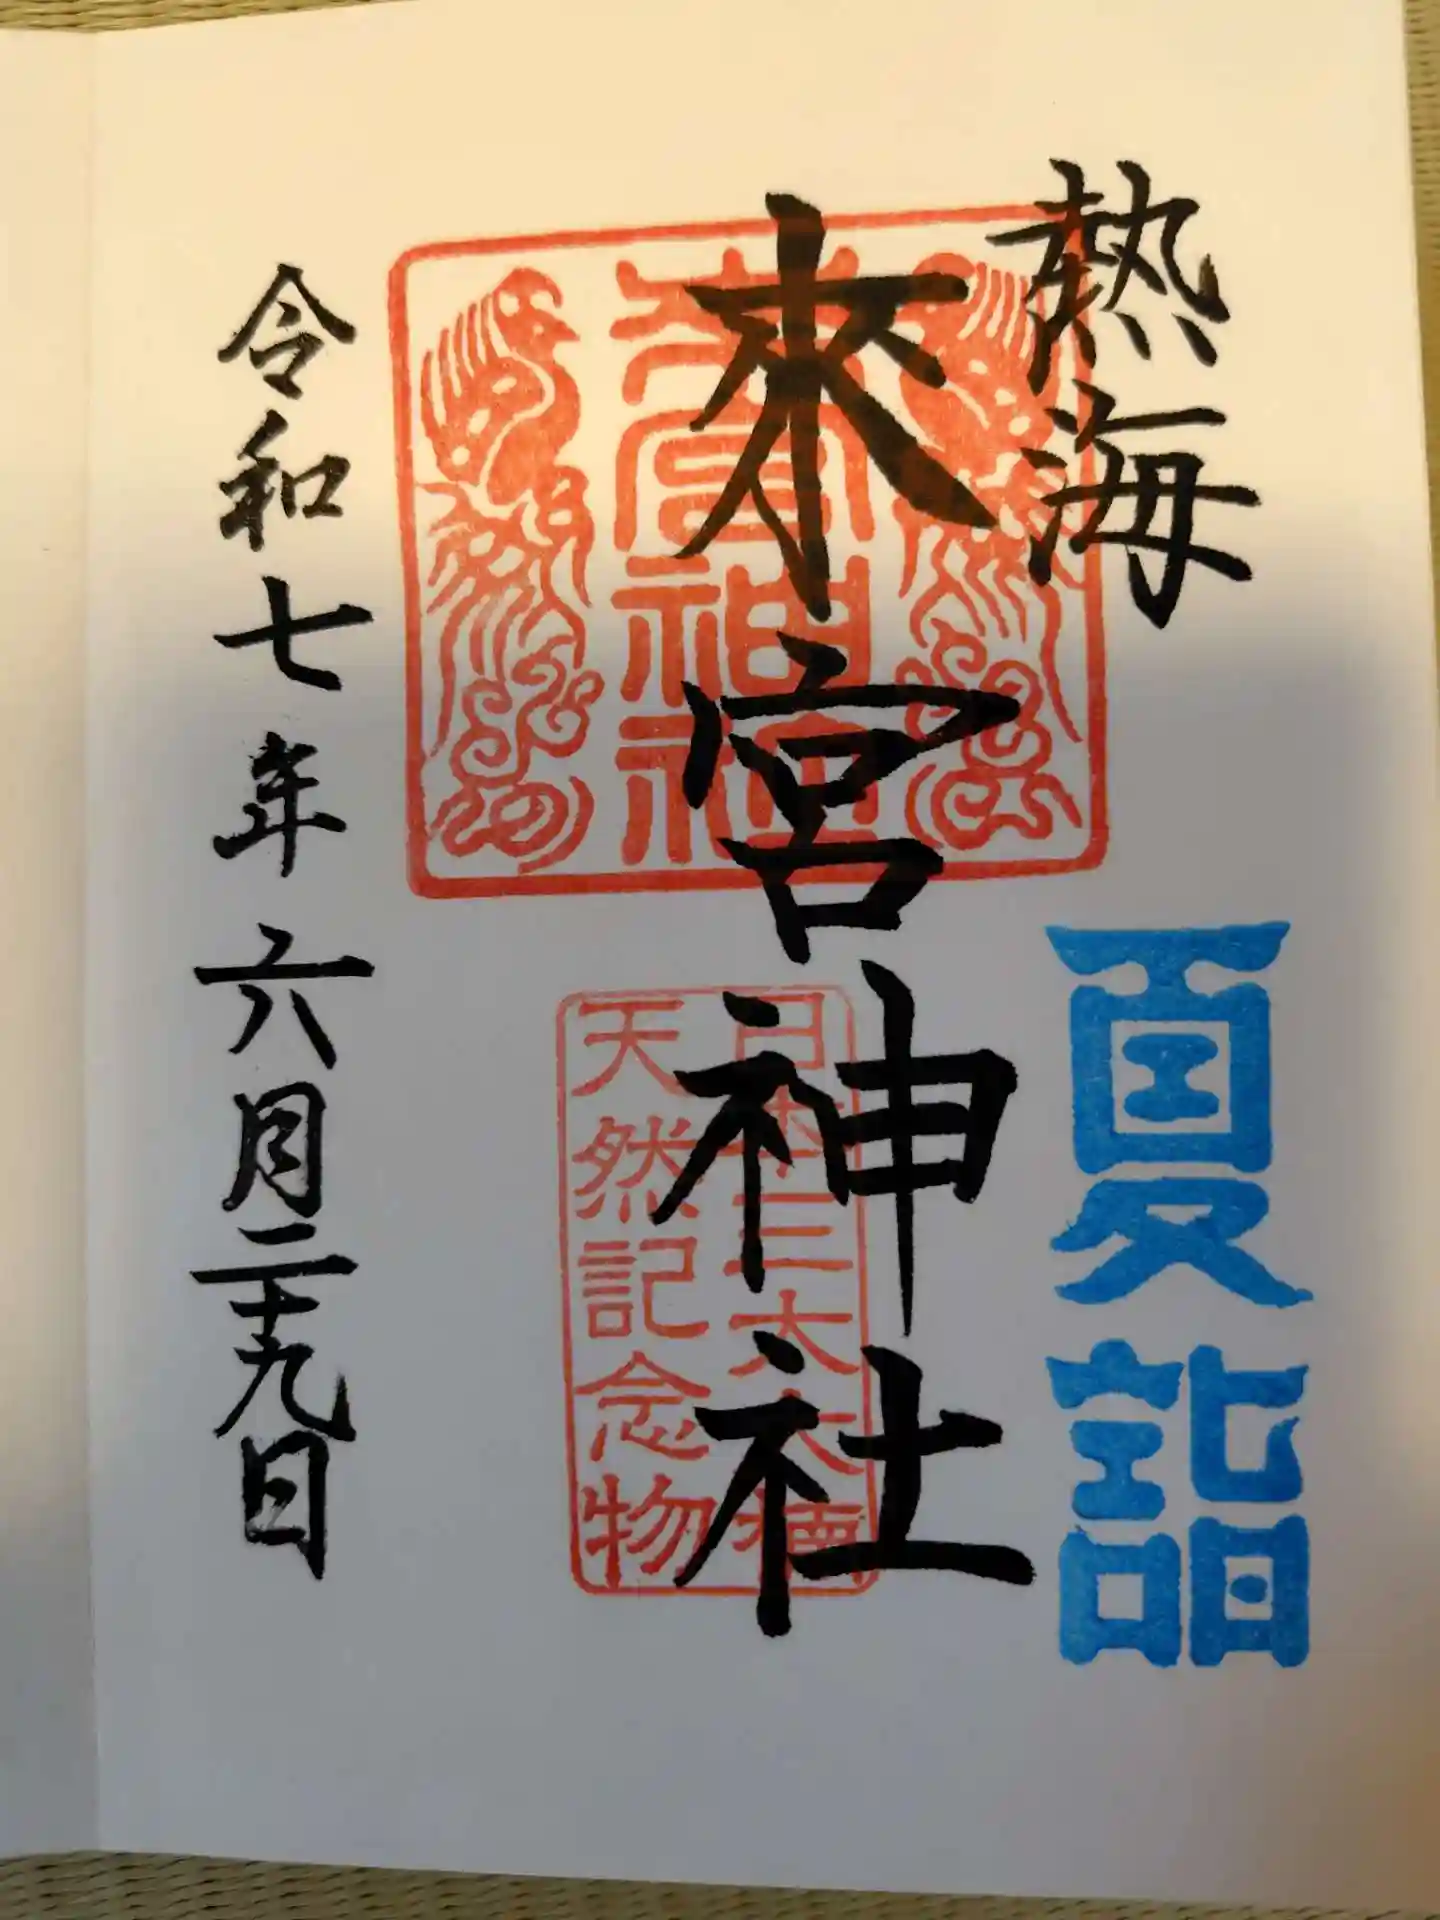 熱海
夏詣
來宮神社
來宮神社
日本三大大楠
天然記念物
令和七年六月二十九日